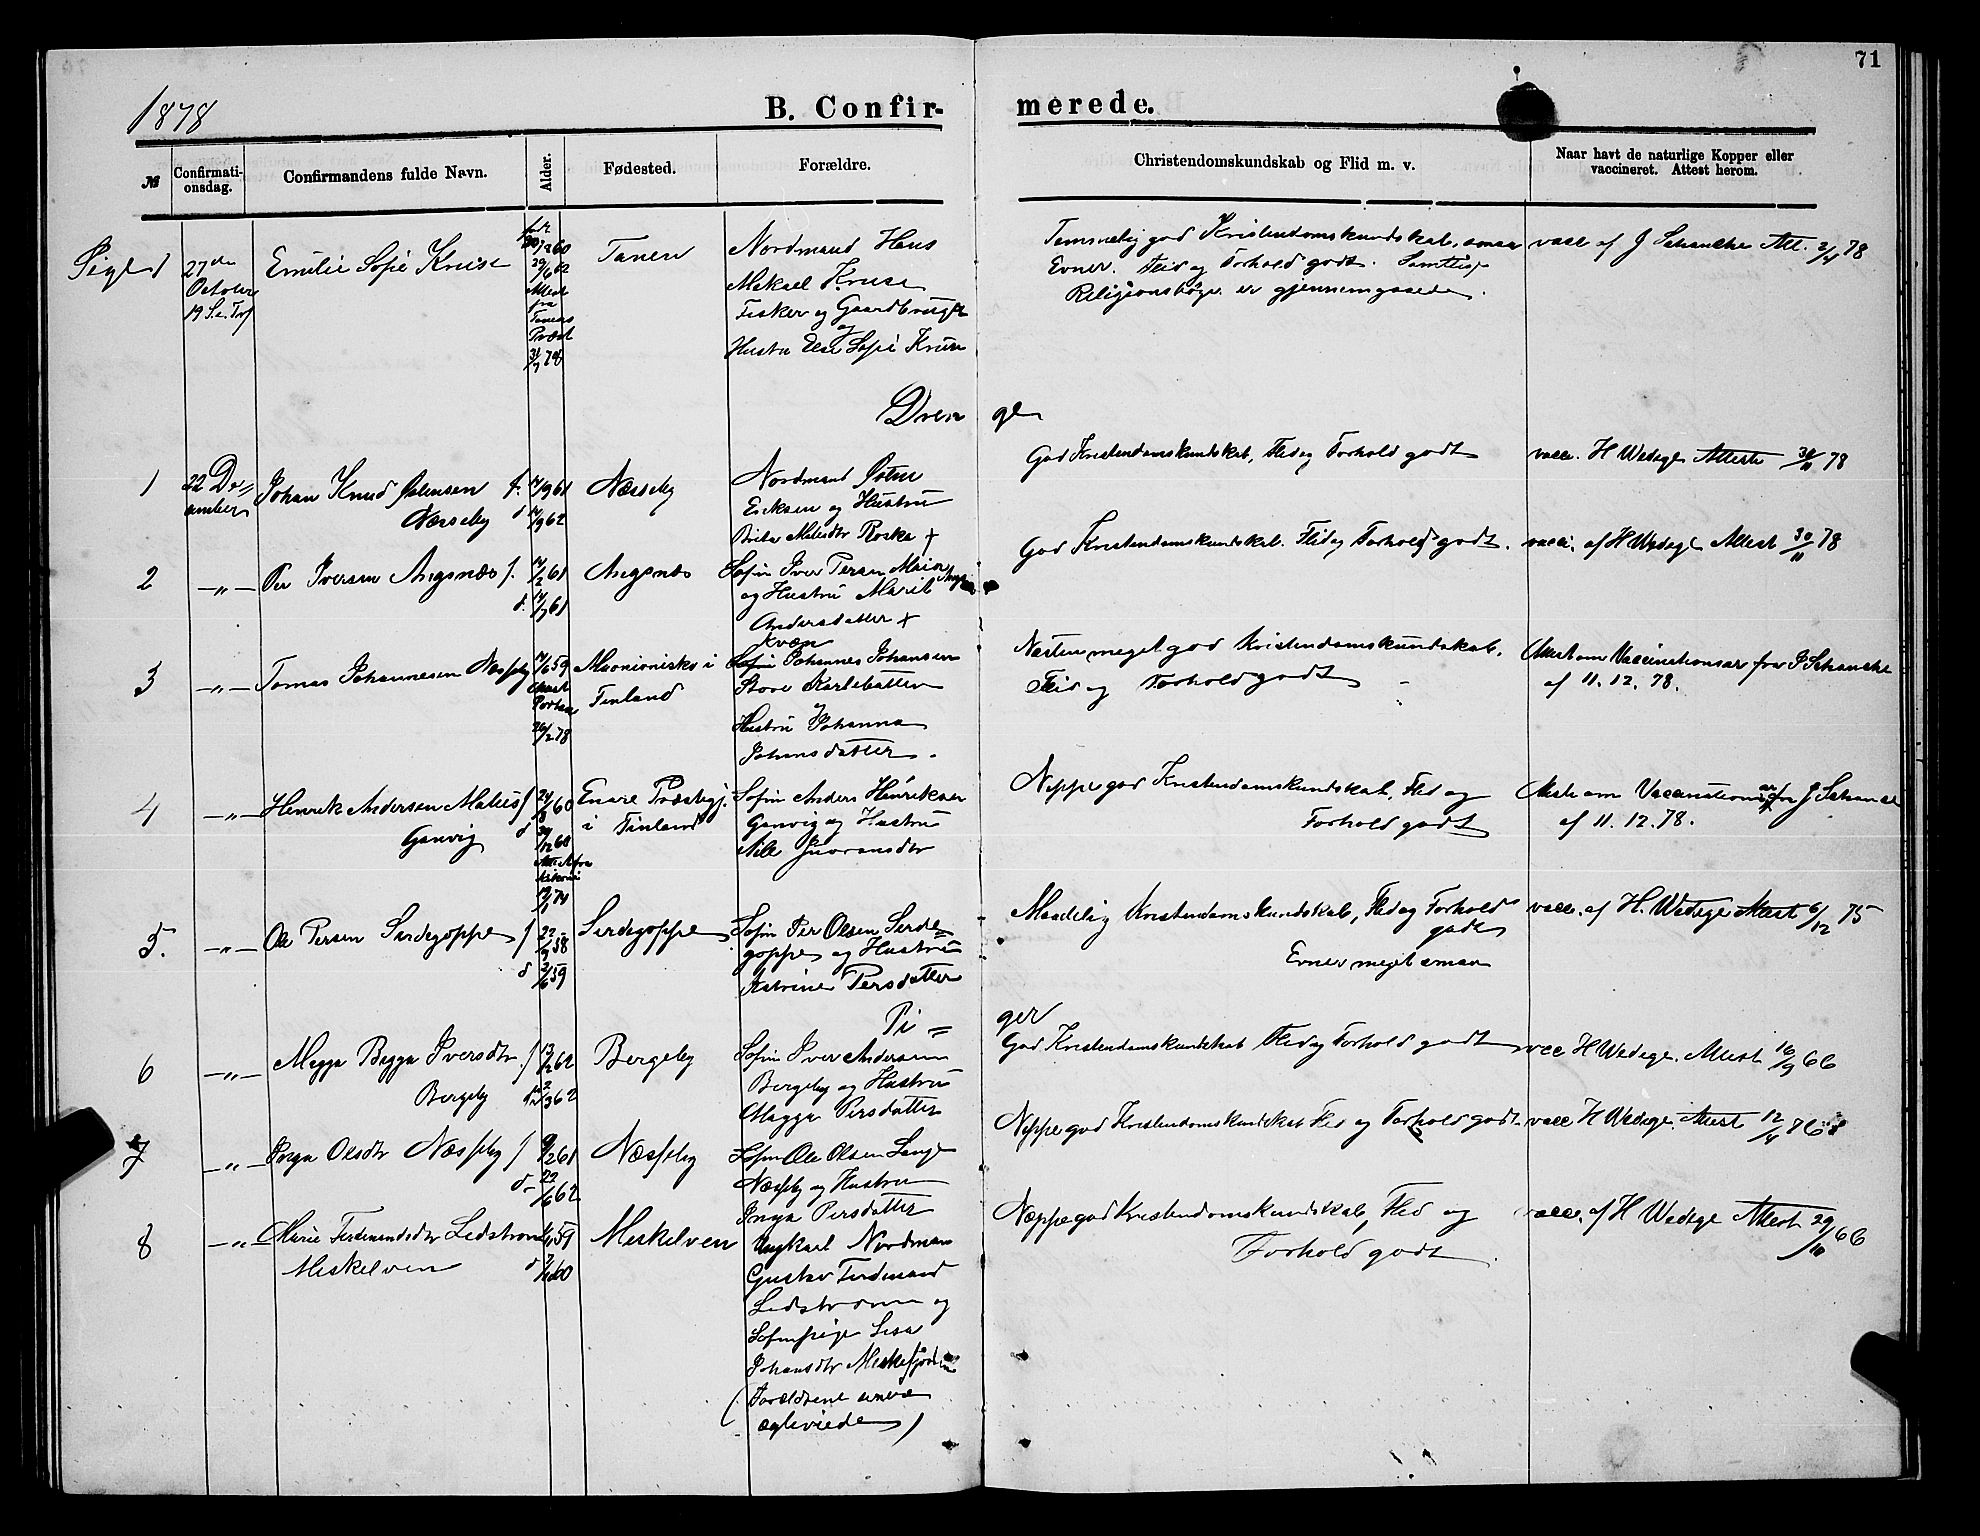 71
1878
B. Confir-
merede.
№
Confirmati-
onsdag.
Confirmandens fulde Navn.
Alder.
Fødested.
Forældre.
Christendomskundskab og Flid m. v.
Naar havt de naturlige Kopper eller
vaccineret. Attest herom.
Pige 1
27de
October
19 S. e. Trf
Emilie Sofie Kruse
20/3 60
29/6 62
Attest
fra
Tanens
Præst
31/7 78
Tanen
Nordmand Hans
Mikael Kruse
Fisker og Gaardbruger
og
Hustru Else Sofie Kruse
Temmelig god Kristendomskundskab, smaa
Evner. Flid og Forhold godt. Samtlige
Religionsbøger er gjennemgaaede.
vacc af J Schanche Att. 2/4 78
Dren
ge
1
22 De=
cember
Johan Knud Østensen
Næsseby
f. 14/9 61
d 14/9 62
Næsseby
Nordmand Østen
Ericksen og Hustru
Brita Matisdtr Roska +
God Kristendomskundskab, Flid og Forhold godt
vacc. H Wedege Attest 30/11 78
2
-"-
Per Iversen Angsnæs f. 14/2 61
d. 14/7 61
Angsnæs
Søfin Iver Persen
og Hustru Marit
Andersdatter +
God Kristendomskundskab. Flid og Forhold godt.
vacci. af H Wedege Attest 30/11 78
3
-"-
Tomas Johannesen Næsseby
14/6 59
26/2 78
Muonionisko i
Finland
Kvæn
Søfin Johannes Johansen
Store Karlebotten
Hustru Johanna
Johansdatter.
Næsten meget god Kristendomskundskab.
Flid og Forhold godt
Attest om Vaccinationsar fra J Schanche
af 11. 12. 78.
4
-"-
Henrik Andersen Matius
Ganvig
f 24/8 60
d
Enare Præstegj.
i Finland
Søfin Anders Henriksen
Ganvig og Hustru
Nille
Neppe god Kristendomskundskab, Flid og
Forhold godt
Attest om Vaccinationsar fra J Schanche
af 11. 12. 78.
5.
-"-
Ole Persen Sirdegoppe
f 22/9 58
d 2/6 59
Sirdegoppe
Søfin Per Olsen Sirde=
goppe og Hustru
Katrine Persdatter
Maadelig Kristendomskundskab, Flid og Forhold
godt
Evner meget smaa
vacc. af H. Wedege Attest 6/12 75
Pi =
ger
6
-"-
Magga Bigga Iversdtr
Bergeby
f 13/2 62
2/3 62
Bergeby
Søfin Iver Andersen
Bergeby og Hustru
Magga Persdatter
God Kristendomskundskab Flid og Forhold godt
vacc H Wedege. Attest 16/9 66
7
-"-
Inga Olsdtr Næsseby
f 9/2 61
d. 22/6 62
Næsseby
Søfin Ole Olsen Lange
Næsseby og Hustru
Inga Persdatter
Neppe god Kristendomskundskab Flid og Forhold godt.
vacc H Wedege. Attest 12/4
8
-"-
Marie Ferdinandsdtr Ledstrom
Meskelven
59
d 60
Meskelven
Ungkarl Nordman
Gustav Ferdinand
Ledstrom og
Søfinpige Lisa
Johansdtr Meskefjorden
(Forældrene
ægteviede)
Næppe god Kristendomskundskab, Flid og
Forhold godt.
vacc. af H Wedege Attest 29/10 66